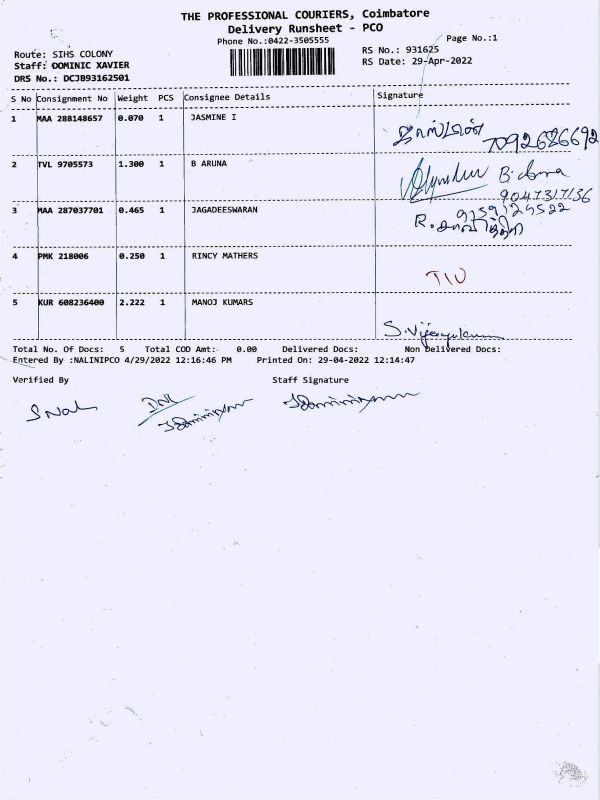 THE PROFESSIONAL COURIERS, Coimbatore
Delivery Runsheet - PCO
Phone No.:0422-3505555
Page No.:1
Route: SIHS COLONY
RS No.: 931625
Staff: DOMINIC XAVIER
RS Date: 29-Apr-2022
DRS No.: DCJB93162501
S No Consignment No Weight PCS Consignee Details Signature
1 MAA 288148657 0.070 1 JASMINE I
7092686692
2 TVL 9705573 1.300 1 B ARUNA
B. Aruna
9047317136
3 MAA 287037701 0.465 1 JAGADEESWARAN
9159124522
4 PMK 218006 0.250 1 RINCY MATHERS
5 KUR 608236400 2.222 1 MANOJ KUMARS
S. Vijayakumar
Total No. Of Docs: 5 Total COD Amt: 0.00 Delivered Docs: Non Delivered Docs:
Entered By :NALINIPCO 4/29/2022 12:16:46 PM Printed On: 29-04-2022 12:14:47
Verified By Staff Signature